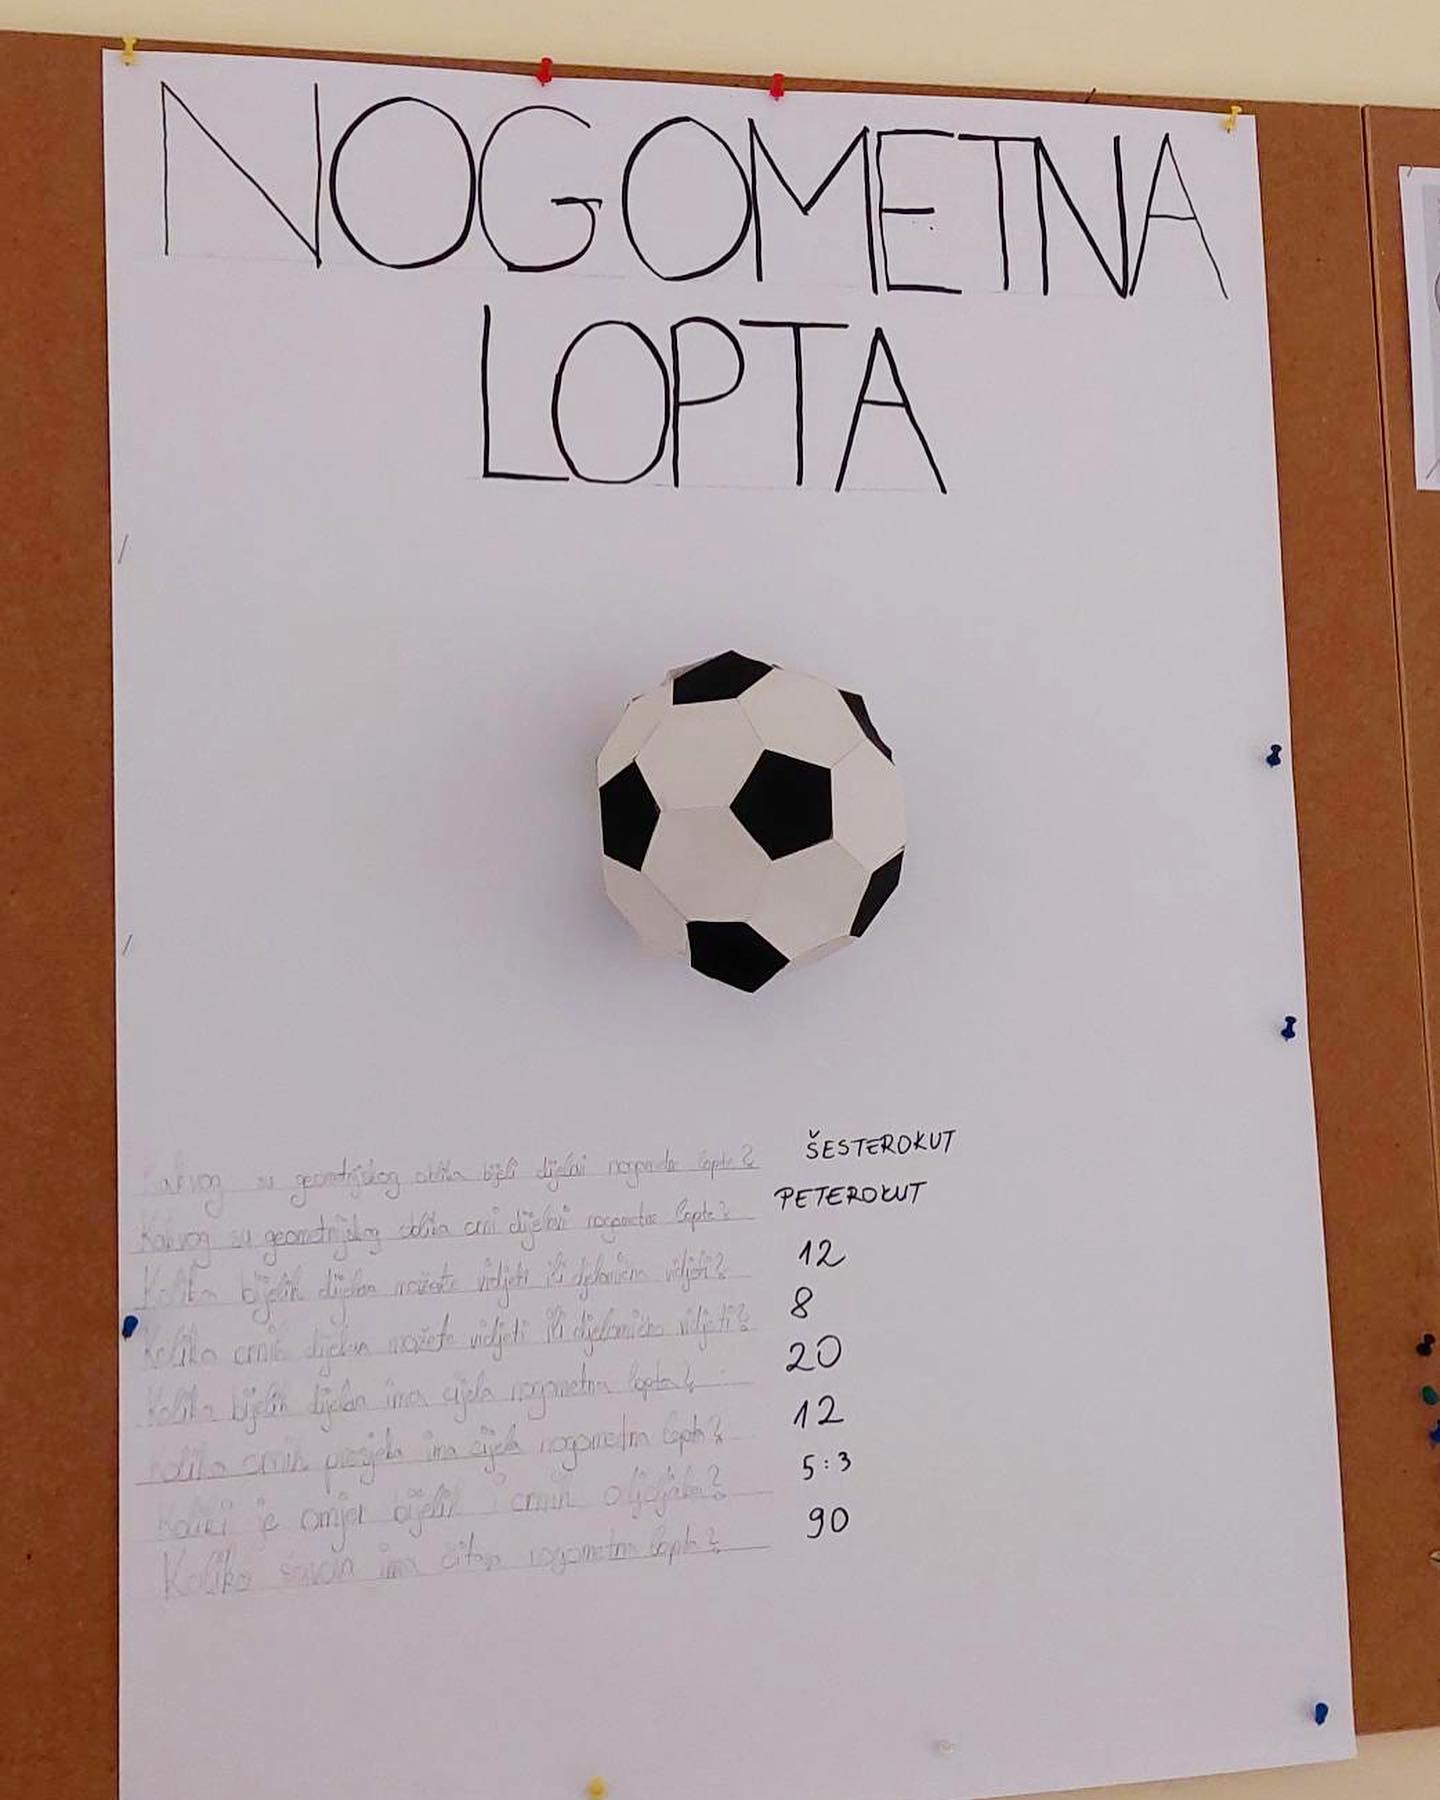 NOGOMETNA
LOPTA
Kakvog su geometrijskog oblika bijeli dijelovi nogometne lopte? ŠESTEROKUT
Kakvog su geometrijskog oblika crni dijelovi nogometne lopte? PETEROKUT
Koliko bijelih dijelova možete vidjeti ili djelomično vidjeti? 12
Koliko crnih dijelova možete vidjeti ili djelomično vidjeti? 8
Koliko bijelih dijelova ima cijela nogometna lopta? 20
Koliko crnih ima cijela nogometna lopta? 12
Koliki je omjer bijelih i crnih 5:3
Koliko šavova ima nogometna lopta? 90